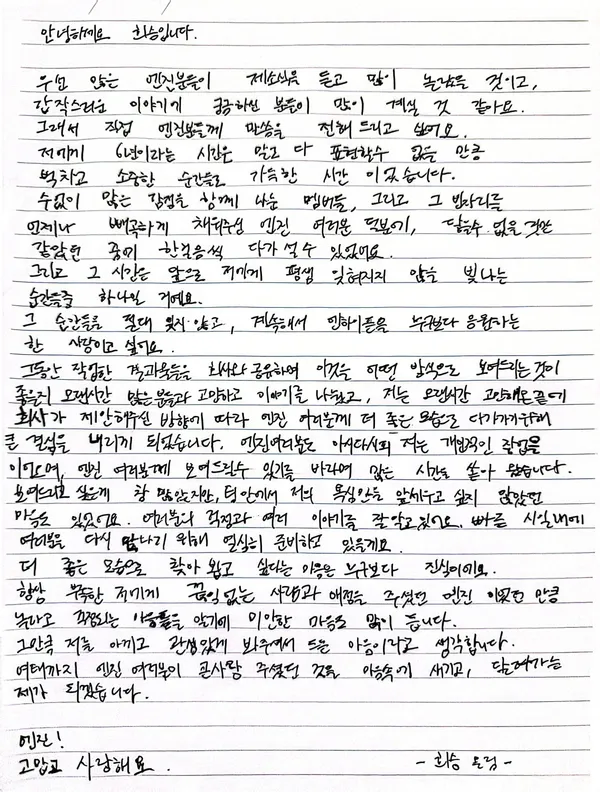 안녕하세요 희승입니다.
우선 많은 엔진분들이 제소식을 듣고 많이 놀랐을 것이고,
갑작스러운 이야기에 궁금하신 분들이 많이 계실 것 같아요.
그래서 직접 엔진분들께 말씀을 전해 드리고 싶어요.
저에게 6년이라는 시간은 말로 다 표현할수 없을 만큼
벅차고 소중한 순간들로 가득한 시간 이었습니다.
수없이 많은 감정을 함께 나눈 멤버들, 그리고 그 빈자리를
언제나 빼곡하게 채워주신 엔진 여러분 덕분에, 닿을수 없을 것만
같았던 꿈에 한걸음씩 다가설 수 있었어요.
그리고 그 시간은 앞으로 저에게 평생 잊혀지지 않을 빛나는
순간들중 하나일 거예요.
그 순간들을 절대 잊지 않고, 계속해서 엔하이픈을 누구보다 응원하는
한 사람이고 싶어요.
그동안 작업한 결과물들을 회사와 공유하며 이것을 어떤 방식으로 보여드리는 것이
좋을지 오랜시간 많은 분들과 고민하고 이야기를 나눴고, 저는 오랜시간 고민해온 끝에
회사가 제안해주신 방향에 따라 엔진 여러분께 더 좋은 모습으로 다가가기위해
큰 결심을 내리게 되었습니다. 엔진여러분도 아시다시피 저는 개인적인 작업을
이어오며, 엔진 여러분께 보여드릴수 있기를 바라며 많은 시간을 쏟아 왔습니다.
보여드리고 싶은게 참 많았지만, 팀 안에서 저의 욕심만을 앞세우고 싶지 않았던
마음도 있었어요. 여러분의 걱정과 여러 이야기를 잘 알고있어요. 빠른 시일내에
여러분을 다시 만나기 위해 열심히 준비하고 있을게요.
더 좋은 모습으로 찾아 뵙고 싶다는 마음은 누구보다 진심이에요.
항상 부족한 저에게 끊임없는 사랑과 애정을 주셨던 엔진 이었던 만큼
놀라고 걱정되는 마음들을 알기에 미안한 마음도 많이 듭니다.
그만큼 저를 아끼고 관심있게 봐주셔서 드는 마음이라고 생각합니다.
여태까지 엔진 여러분이 큰사랑 주셨던 것을 마음속에 새기고, 달려가는
제가 되겠습니다.
엔진!
고맙고 사랑해요.
- 희승 올림 -